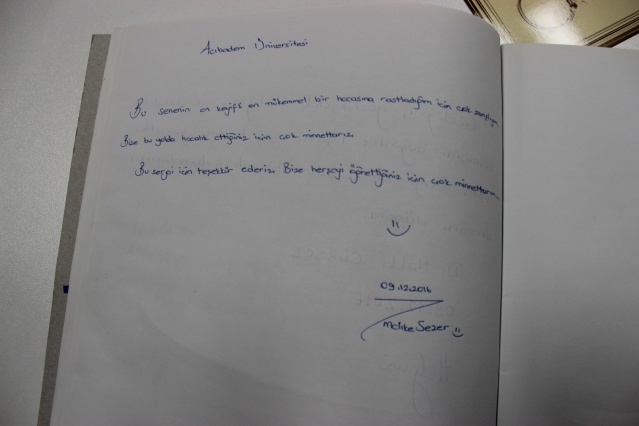 Acıbadem Üniversitesi
Bu senenin en keyifli en mükemmel bir hocasına rastladığım için çok şanslıyım
Bize bu yolda hocalık ettiğiniz için çok minnettarız.
Bu sergi için teşekkür ederiz. Bize herşeyi öğrettiğiniz için çok minnettarım.
09.12.2016
Melike Sezer